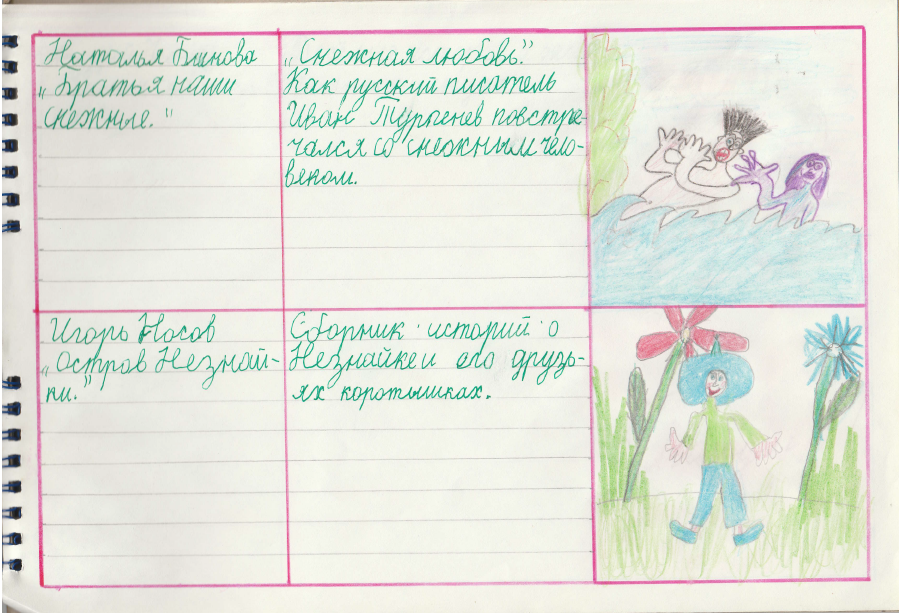 Наталья
„Братья наши
снежные."
„Снежная любовь."
Как русский писатель
Иван Тургенев повстре-
чался со снежным чело-
веком.
Игорь Носов
„Остров Незнай-
ки."
Сборник историй о
Незнайке и его друзь-
ях коротышках.